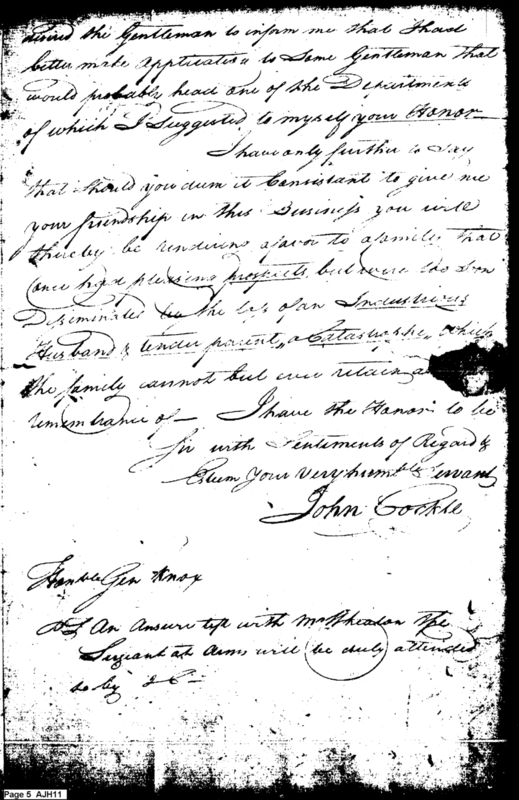 the Gentleman to inform me that I had
better make application to Some Gentleman that
would probably head one of the Departments
of which I Suggested to myself your Honor—
I have only further to Say
that should you deem it Consistant to give me
your friendship in this Business you will
thereby be rendering a favor to a family that
once had pleasing prospects but were too Soon
Diseminated by the loss of an Industrious
Husband & tender parent, a Catastrophe, which
the family cannot but ever retain a
remembrance of— I have the Honor to be
Sir with Sentiments of Regard &
Esteem Your Very humble Servant
John Cockle
Honble Gen Knox
PS An Answer left with Mr Wheaton the
Sergeant at Arms will be duly attended
to by J C—
Page 5 AJH11